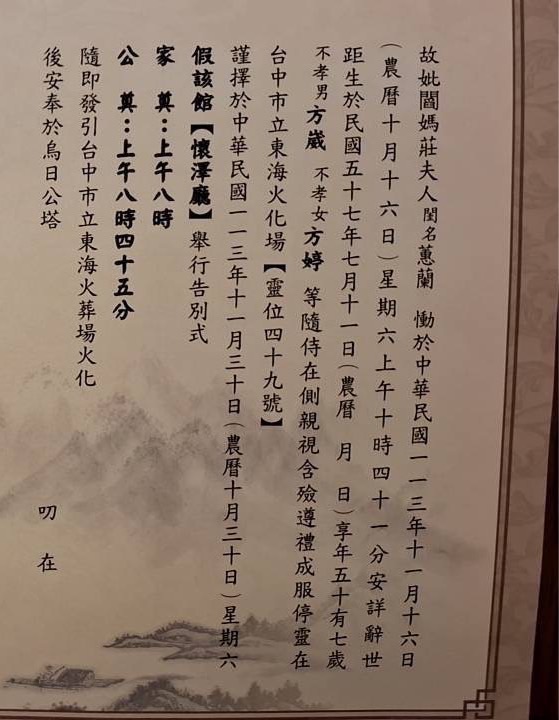 故妣閻媽莊夫人閨名蕙蘭　慟於中華民國一一三年十一月十六日
（農曆十月十六日）星期六上午十時四十一分安詳辭世
距生於民國五十七年七月十一日（農曆　月　日）享年五十有七歲
不孝男方崴　不孝女方婷　等隨侍在側親視含殮遵禮成服停靈在
台中市立東海火化場【靈位四十九號】
謹擇於中華民國一一三年十一月三十日（農曆十月三十日）星期六
假該館【懷澤廳】舉行告別式
家　奠：上午八時
公　奠：上午八時四十五分
隨即發引台中市立東海火葬場火化
後安奉於烏日公塔
叨在